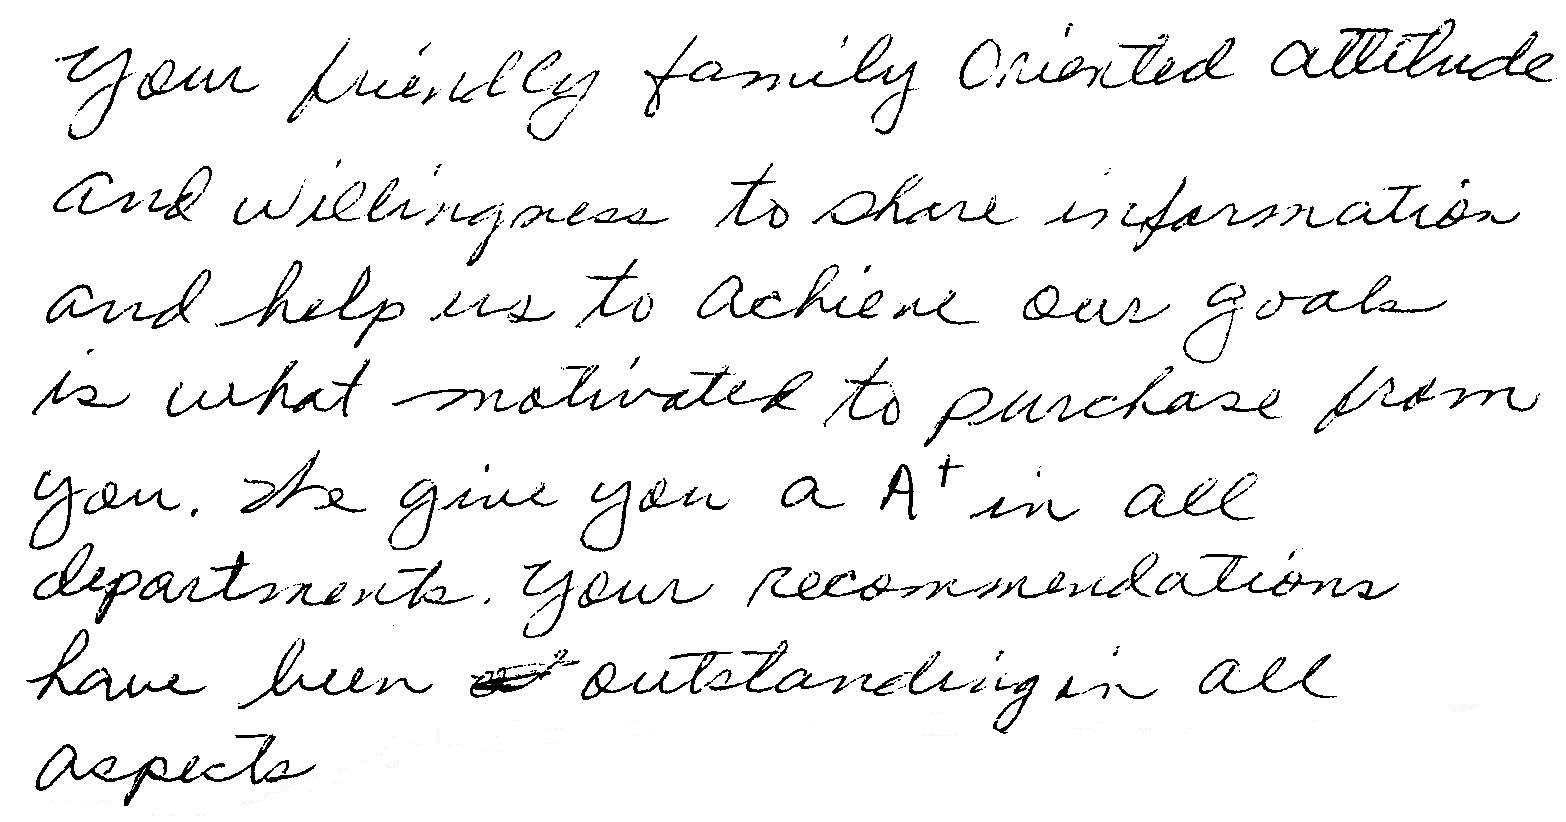 Your friendly family oriented attitude
and willingness to share information
and help us to achieve our goals
is what motivated to purchase from
you. We give you a A+ in all
departments. Your recommendations
have been outstanding in all
aspects